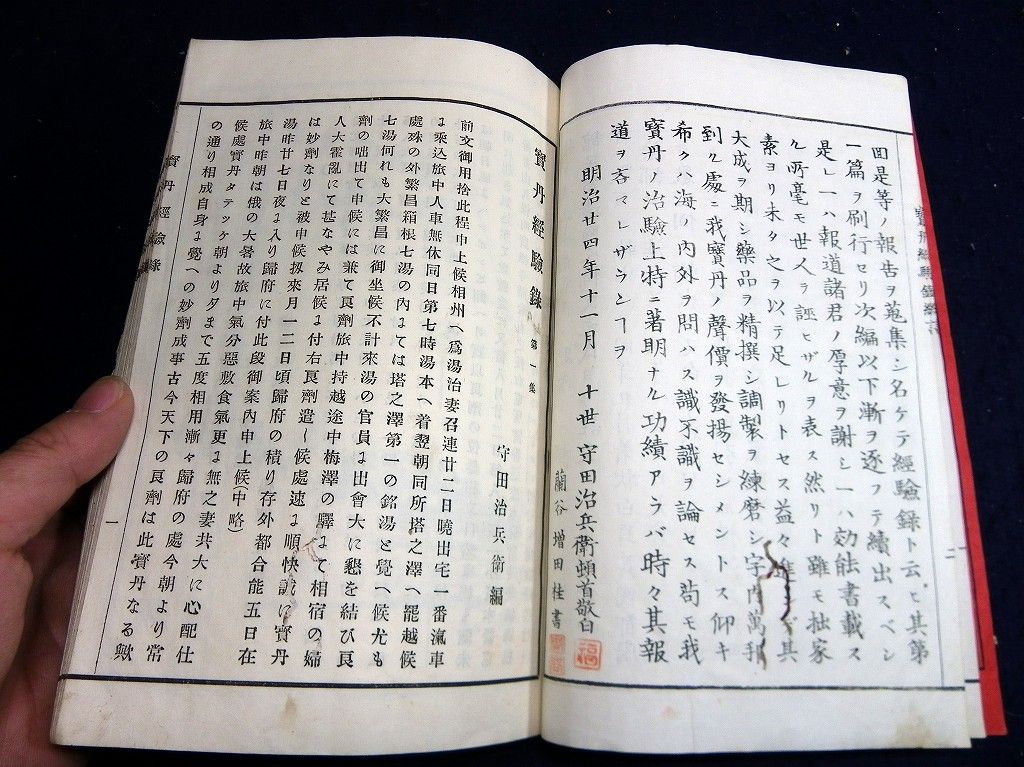 回是等ノ報告ヲ蒐集シ名ケテ經驗録ト云ヒ其第
一篇ヲ刷行セリ次編以下漸ヲ逐フテ續出スベシ
是レ一ハ報道諸君ノ厚意ヲ謝シ一ハ効能書載ス
ル所毫モ世人ヲ誣ヒザルヲ表ス然リト雖モ拙家
素ヨリ未タ之ヲ以テ足レリトセス益々進ンデ其
大成ヲ期シ藥品ヲ精撰シ調製ヲ練磨シ宇内萬邦
到ル處ニ我寶丹ノ聲價ヲ發揚セシメントス仰キ
希クハ海ノ内外ヲ問ハス識不識ヲ論セス苟モ我
寶丹ノ治驗上特ニ著明ナル功績アラバ時々其報
道ヲ吝マレザランヿヲ
明治廿四年十一月
十世 守田治兵衛頓首敬白
蘭谷 增田桂書
二
寶丹經驗錄 第一集
守田治兵衛編
前文御用捨此程中上候相州へ爲湯治妻召連廿二日曉出宅一番滊車
ま乘込旅中人車無休同日第七時湯本へ着翌朝同所塔之澤へ罷越候
處殊の外繁昌箱根七湯の内まては塔之澤第一の銘湯と覺へ候尤も
七湯何れも大繁昌に御坐候不計來湯の官員ま出會大に懇を結び良
劑の咄出て申候には兼て良劑旅中持越途中梅澤の驛まて相宿の婦
人大霍亂にて甚なやみ居候ま付右良劑遣し候處速ま順快誠に寶丹
は妙劑なりと被申候扨來月一二日頃歸府の積り存外都合能五日在
湯昨廿七日夜ま入り歸府に付此段御案内申上候(中略)
旅中昨朝は俄の大暑故旅中氣分惡敷食氣更ま無之妻共大に心配仕
候處寶丹タテツケ朝より夕まで五度相用漸々歸府の處今朝より常
の通り相成自身ま覺への妙劑成事古今天下の良劑は此寶丹なる歟
寶丹經驗錄
一